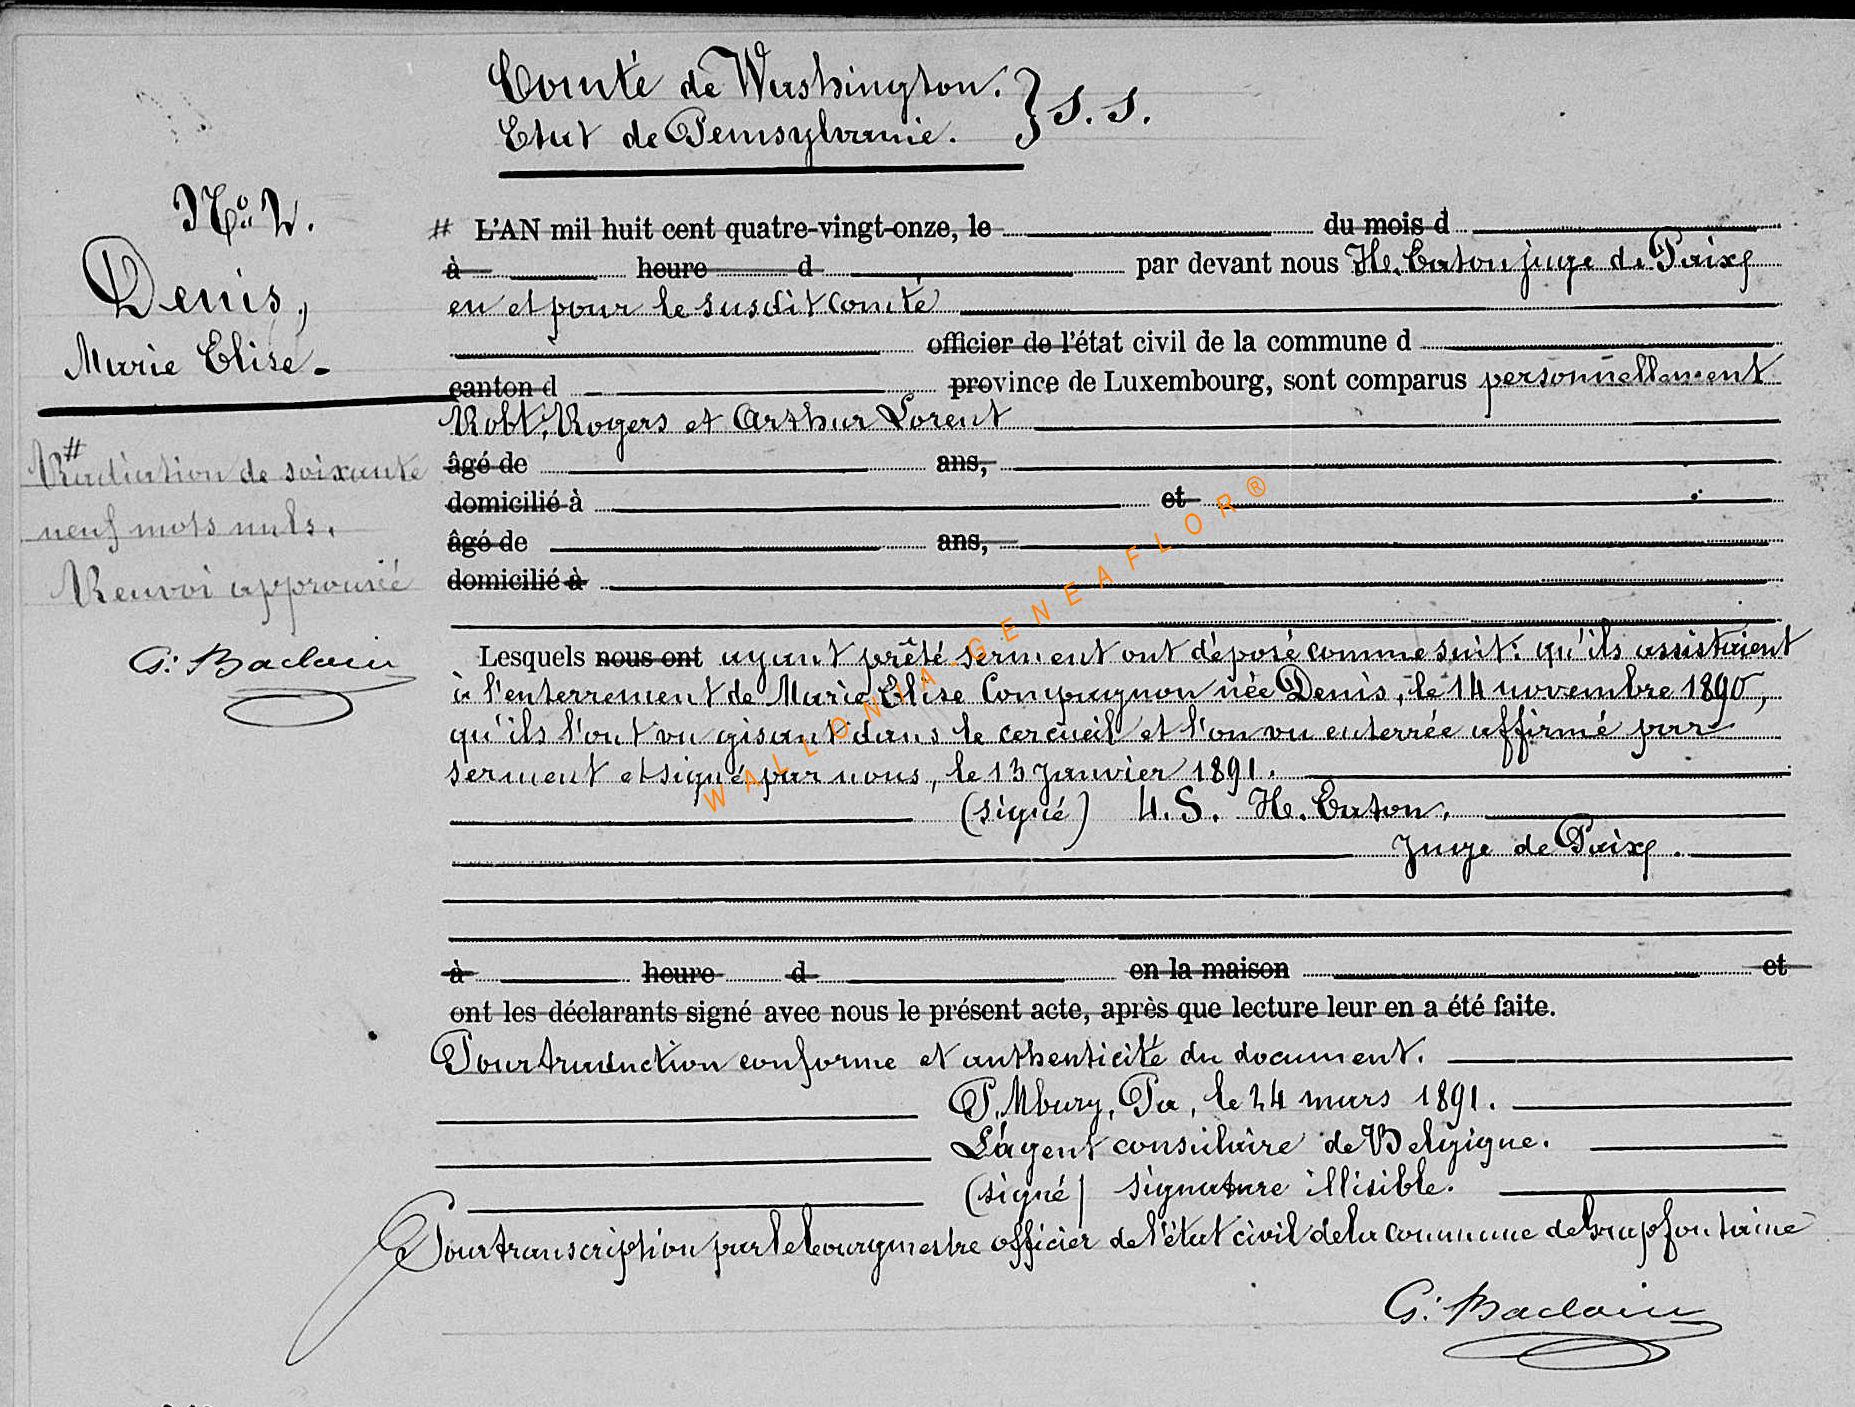 Comté de Washington. } S. S.
Etat de Pensylvanie.
No. 2.
Denis,
Marie Elise.
#
Radiation de soixante
neuf mots nuls.
Renvoi approuvé
G. Baclain
# L'AN mil huit cent quatre-vingt-onze, le du mois d
à heure d par devant nous H. Eaton juge de Paix
en et pour le susdit comté
officier de l'état civil de la commune d
canton d province de Luxembourg, sont comparus personnellement
Robt. Rogers et Arthur Lorent
âgé de ans,
domicilié à et
âgé de ans,
domicilié à
Lesquels nous ont ayant prêté serment ont déposé comme suit: qu'ils assistaient
à l'enterrement de Marie Elise Compagnon née Denis, le 14 novembre 1890,
qu'ils l'ont vu gisant dans le cercueil et l'on vu enterrée affirmé par
serment et signé par nous, le 13 Janvier 1891.
(signé) L. S. H. Eaton,
Juge de Paix.
à heure d en la maison et
ont les déclarants signé avec nous le présent acte, après que lecture leur en a été faite.
Pour traduction conforme et authenticité du document.
P. Mbury, Pa, le 24 mars 1891.
L'agent consulaire de Belgique.
(signé) signature illisible.
Pour transcription par le bourgmestre officier de l'état civil de la commune de Grapfontaine
G. Baclain
WALLONIA-GENEAFLOR®